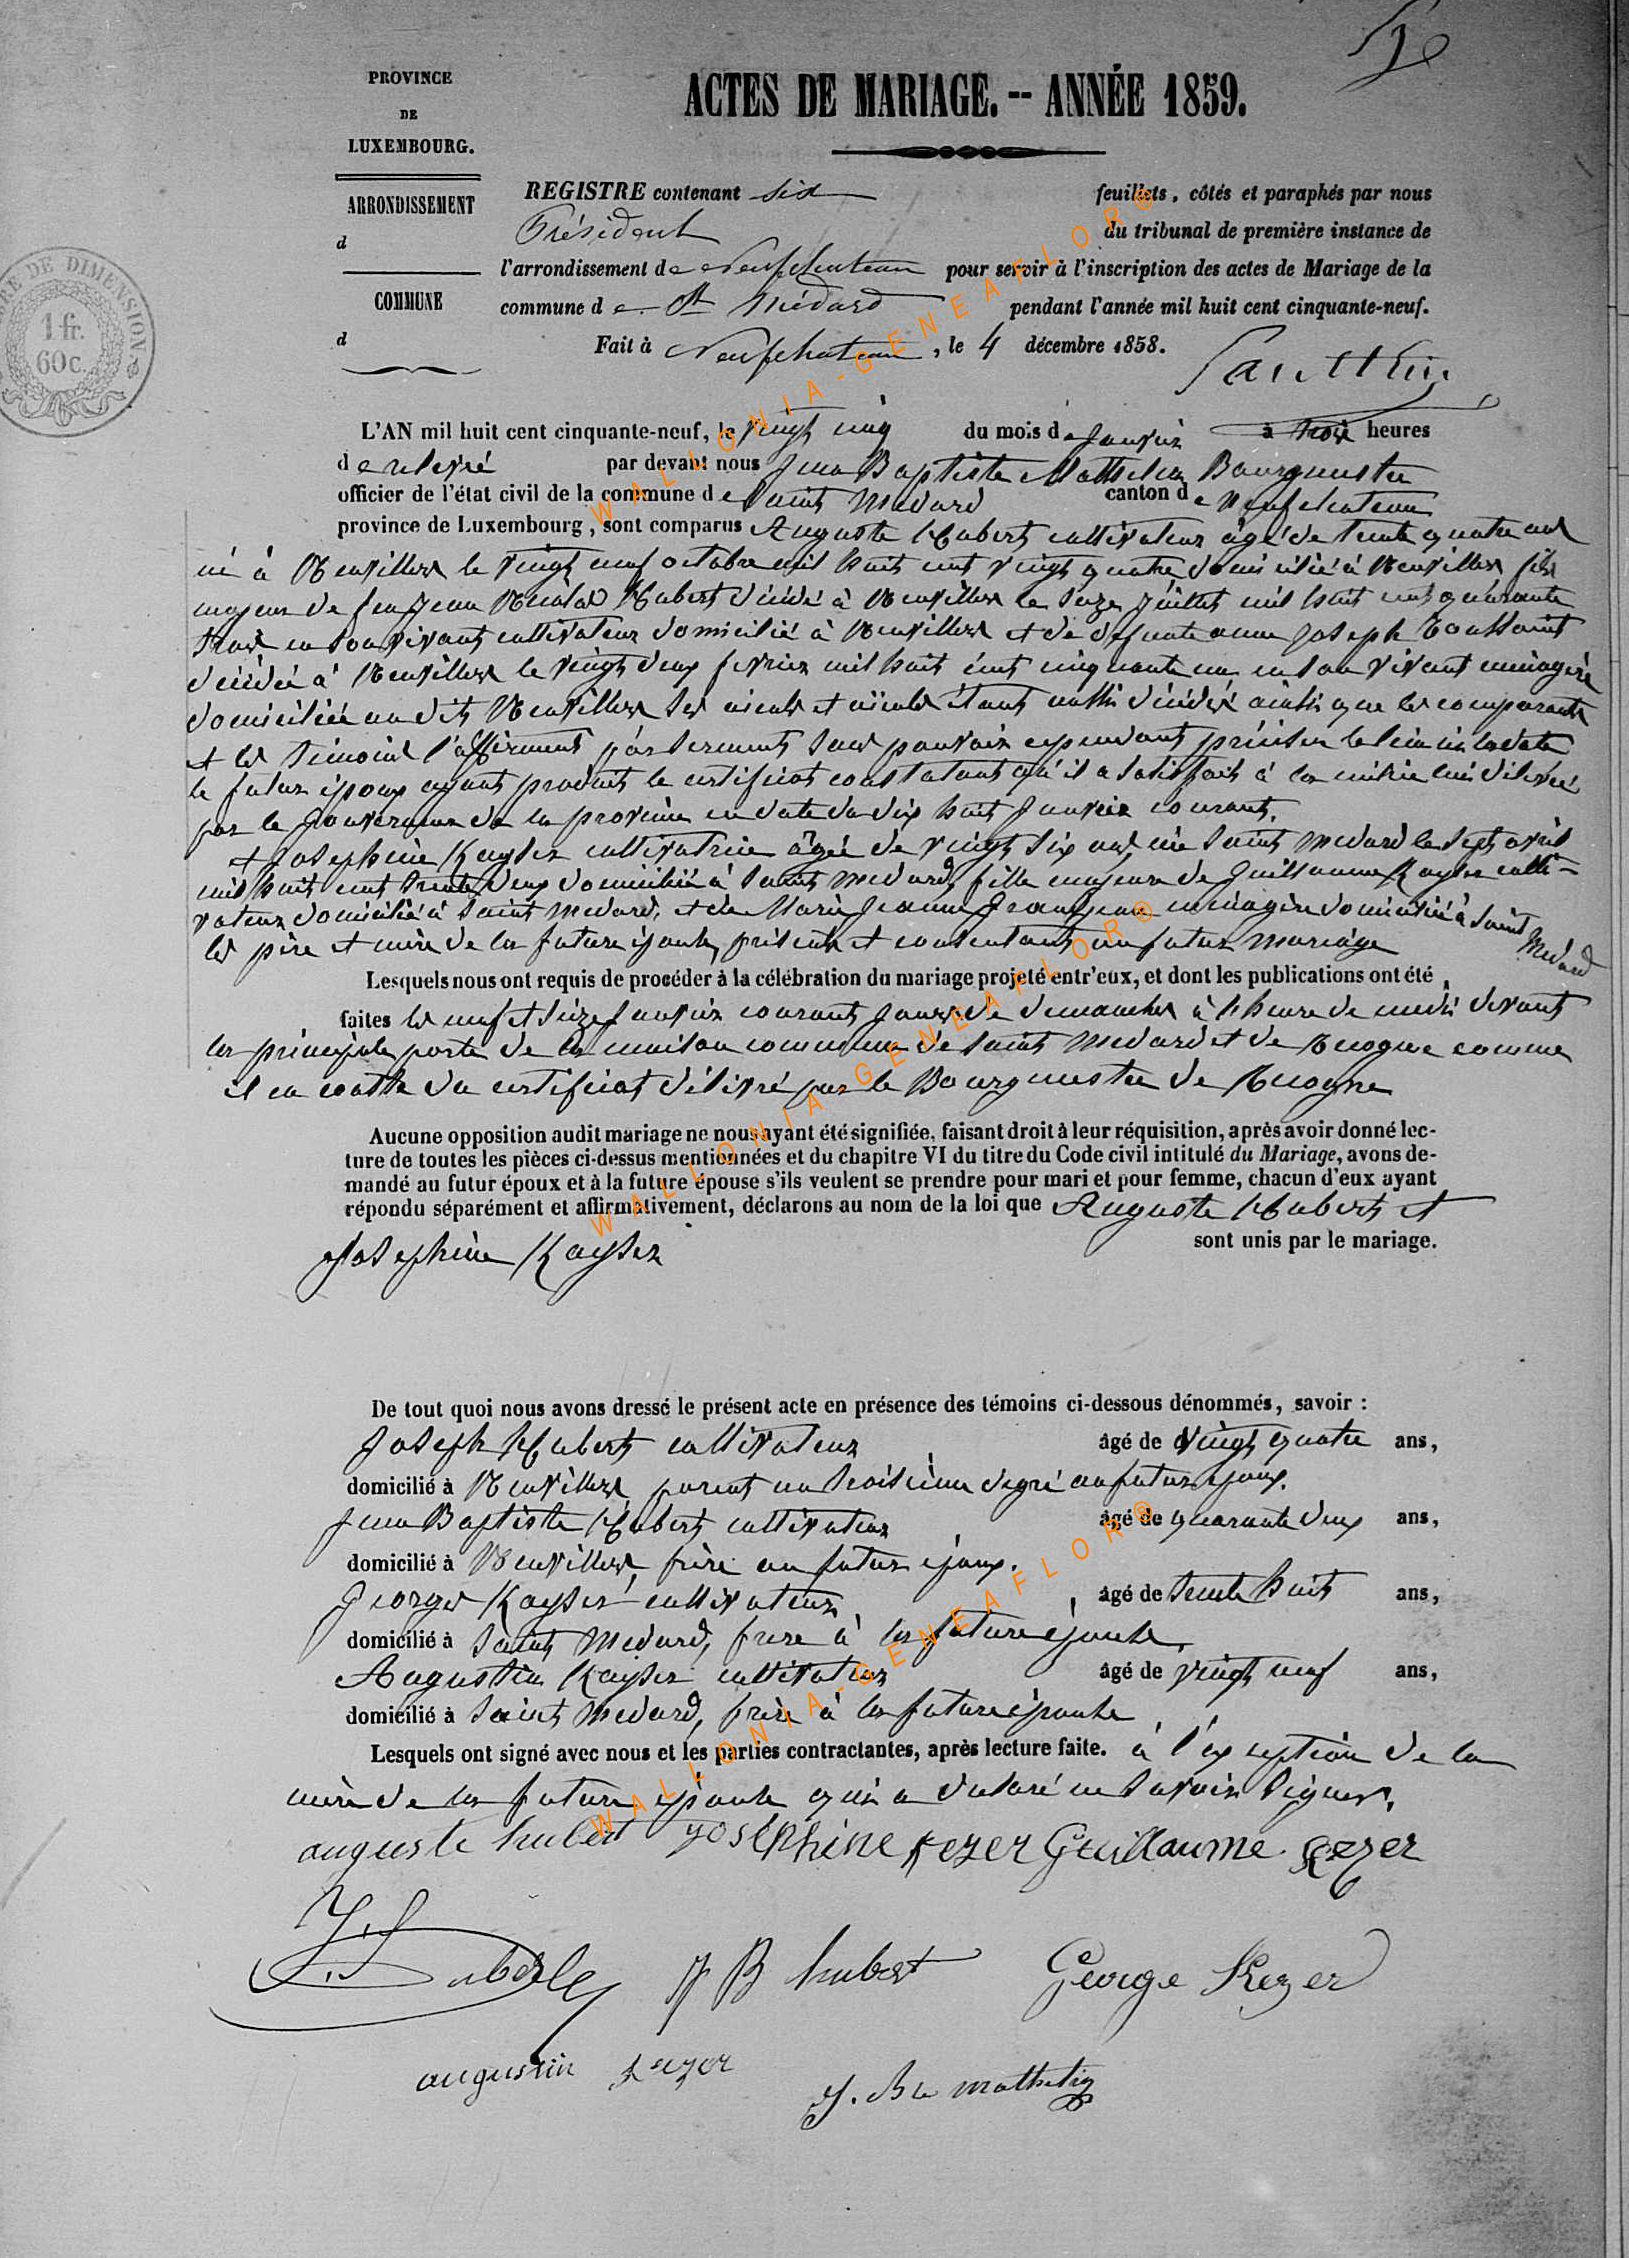 PROVINCE
DE
LUXEMBOURG.
ARRONDISSEMENT
d
COMMUNE
d
TIMBRE DE DIMENSION
1 fr.
60c.
ACTES DE MARIAGE. -- ANNÉE 1859.
REGISTRE contenant six feuillets, côtés et paraphés par nous
Président du tribunal de première instance de
l'arrondissement de Neufchateau pour servir à l'inscription des actes de Mariage de la
commune de St Médard pendant l'année mil huit cent cinquante-neuf.
Fait à Neufchateau, le 4 décembre 1858.
L'AN mil huit cent cinquante-neuf, le vingt cinq du mois de Janvier à trois heures
de relevé par devant nous Jean Baptiste Bourgmestre
officier de l'état civil de la commune de Saint Médard canton de Neufchateau
province de Luxembourg, sont comparus Auguste Hubert cultivateur âgé de trente quatre ans
né à Neuvillers le vingt neuf octobre mil huit cent vingt quatre domicilié à Neuvillers fils
majeur de feu Jean Nicolas Hubert décédé à Neuvillers le Juillet mil huit cent quarante
trois en son vivant cultivateur domicilié à Neuvillers et de defunte anne Joseph Toussaint
décédée à Neuvillers le vingt deux fevrier mil huit cent cinquante un en son vivant ménagère
domiciliée au dit Neuvillers ses aieuls et aieules étant aussi décédés ainsi que les comparants
et les témoins l'affirment par serment sans pouvoir cependant préciser le lieu ni la date
le futur époux ayant produit le certificat constatant qu'il a satisfait à la milice lui délivré
par le Gouverneur de la province en date du dix huit Janvier courant.
et Josephine Kayser cultivatrice âgée de vingt six ans née Saint Medard le sept avril
mil huit cent trente deux domiciliée à Saint Medard, fille majeure de Guillaume Kayser culti-
vateur domicilié à Saint Medard, et de Marie Jeanne Grandjean ménagère domiciliée à Saint Medard
les père et mère de la future épouse, présents et consentants au futur mariage
Lesquels nous ont requis de procéder à la célébration du mariage projeté entr'eux, et dont les publications ont été
faites les neuf et seize Janvier courant jours de dimanches à l'heure de midi devant
la principale porte de la maison commune de Saint Medard et de Recogne comme
il en conste du certificat délivré par le Bourgmestre de Recogne
Aucune opposition audit mariage ne nous ayant été signifiée, faisant droit à leur réquisition, après avoir donné lec-
ture de toutes les pièces ci-dessus mentionnées et du chapitre VI du titre du Code civil intitulé du Mariage, avons de-
mandé au futur époux et à la future épouse s'ils veulent se prendre pour mari et pour femme, chacun d'eux ayant
répondu séparément et affirmativement, déclarons au nom de la loi que Auguste Hubert et
Josephine Kayser sont unis par le mariage.
De tout quoi nous avons dressé le présent acte en présence des témoins ci-dessous dénommés, savoir :
Joseph Hubert cultivateur âgé de vingt quatre ans,
domicilié à Neuvillers parent au troisième degré au futur époux.
Jean Baptiste Hubert cultivateur âgé de quarante deux ans,
domicilié à Neuvillers, frère au futur époux.
Georges Kayser cultivateur âgé de trente huit ans,
domicilié à Saint Medard, frere à la future épouse.
Augustin Kayser cultivateur âgé de vingt neuf ans,
domicilié à Saint Medard, frère à la future épouse
Lesquels ont signé avec nous et les parties contractantes, après lecture faite. à l'exception de la
mère de la future épouse qui a déclaré ne savoir signer.
auguste hubert josephine kezer Guillaume kezer
J B hubert George Kezer
augustin
WALLONIA-GENEAFLOR®
WALLONIA-GENEAFLOR®
WALLONIA-GENEAFLOR®